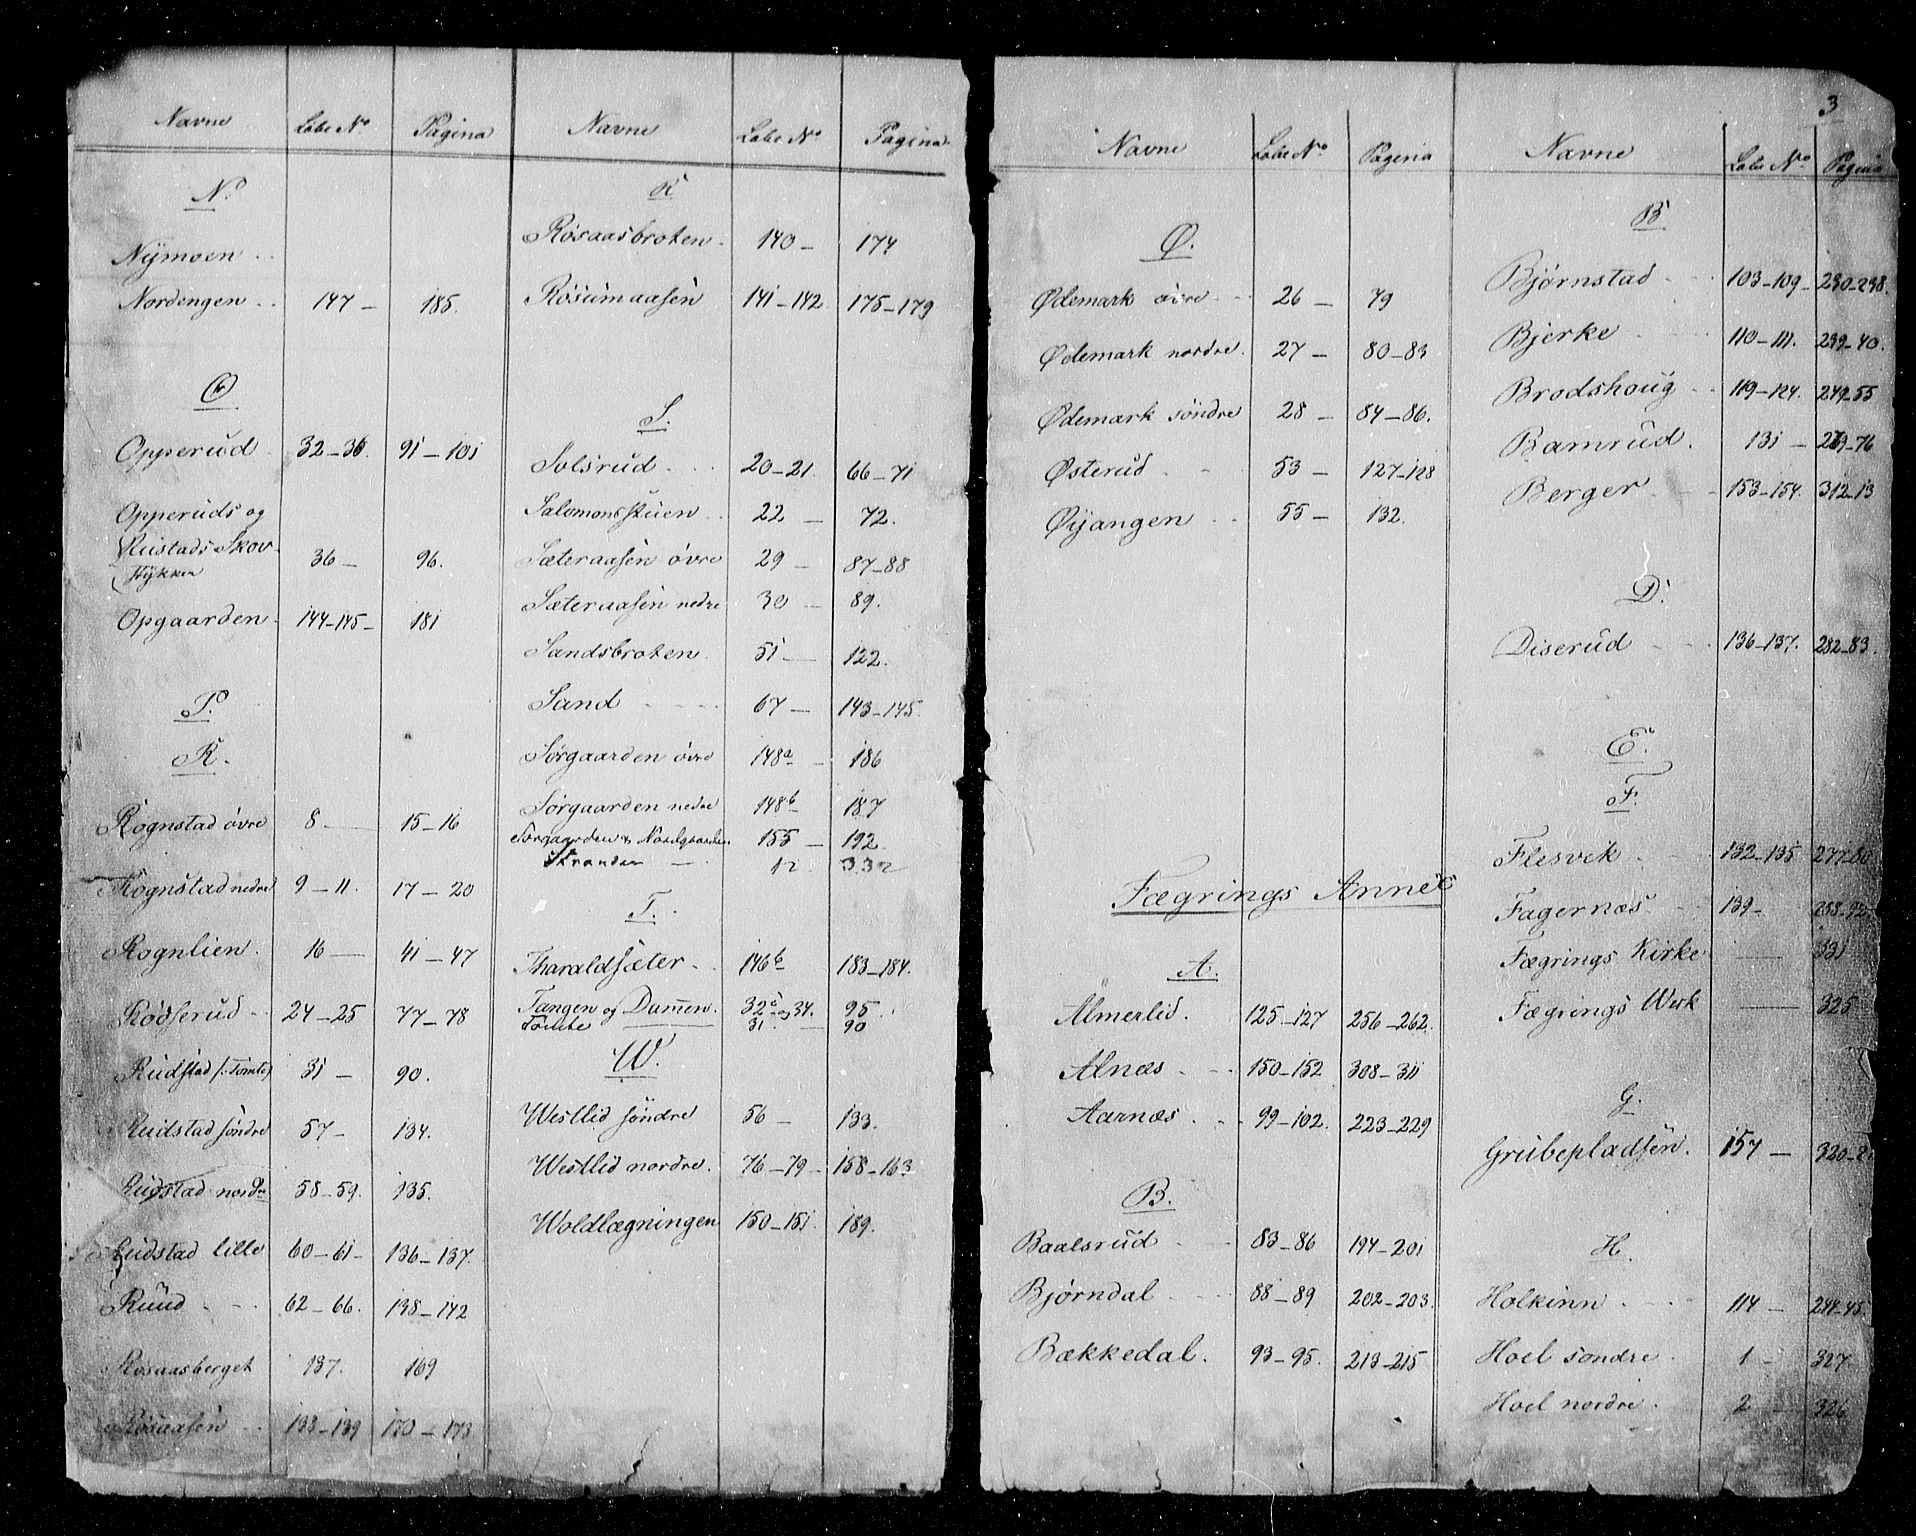 Navne Løbe No. Pagina
N.
Nymoen . .
Nordengen . . 147 — 185.
O
Opperud 32–36. 91 – 101
Opperuds og
Rustads Skov-
stykker 36 — 96.
Opgaarden 144–145 – 181
P.
R.
Rognstad øvre 8 — 15–16
Rognstad nedre 9 – 11. 17 – 20
Rognlien . 16 — 41 – 47
Rødserud . . 24–25 77–78
Rudstad (: Tomte) 31 — 90.
Rudstad søndre 57 – 134.
Rudstad nordre 58–59. 135.
Rudstad lille 60–61 – 136–137.
Ruud . - - 62–66. 138–142
Røsaasberget 137. 169
Røsaasen . . 138–139 170–173
Navne Løbe No. Pagina
R
Røsaasbroten . 140 – 174
Røsumaasen 141–142 175–179
S.
Solsrud . . . 20–21. 66–71
Salomonsstuen . . 22 — 72.
Sæteraasen øvre 29 – 87–88
Sæteraasen nedre 30 – 89.
Sandsbroten . 51 — 122.
Sand - - - 67 — 143–145.
Sørgaarden øvre 148a – 186
Sørgaarden nedre 148b 187
Sørgaarden & Nordgaarden 155 — 192
Stranden — . 12. 332
T.
Tharaldsæter . . 146b 183–184.
Tangen og Dammen . 32c og 34. 95.
Tomte 31. — 90
W.
Westlid søndre 56 – 133.
Westlid nordre . 76–79 – 158–163
Woldlægningen 150–151. 189.
3
Navne Løbe No. Pagina
Ø.
Ødemark øvre - - 26 – 79
Ødemark nordre . 27 — 80–83
Ødemark søndre 28 – 84–86.
Østerud . - 53 – 127–128
Øyangen . . 55 – 132.
Fægrings Annex
A.
Almerlid . 125–127 256–262.
Alnæs . - - 150–152 308–311
Aarnæs . . . 99–102. 223–229
B.
Baalsrud - - 83–86 194–201
Bjørndal . - - 88–89 202–203.
Bækkedal . 93–95. 213–215
Navne Løbe No. Pagina
B
Bjørnstad - - 103–109 – 230–238.
Bjerke . - 110–111. 239–40.
Brodshoug . . 119–124. 249–55
Bamrud . 131 – 269–76
Berger . - - 153–154. 312–13
D.
Diserud - - . 136–137. 282–83.
E.
F.
Flesvik . - - 132–135 277–80
Fagernæs . - 139 – 288–92
Fægrings Kirke — 331
Fægrings Werk — 325
G.
Grubepladsen . 157 — 320–21
H.
Holkinn . . . 114 – 244–45.
Hoel søndre . 1 – 327.
Hoel nordre . 2 – 326